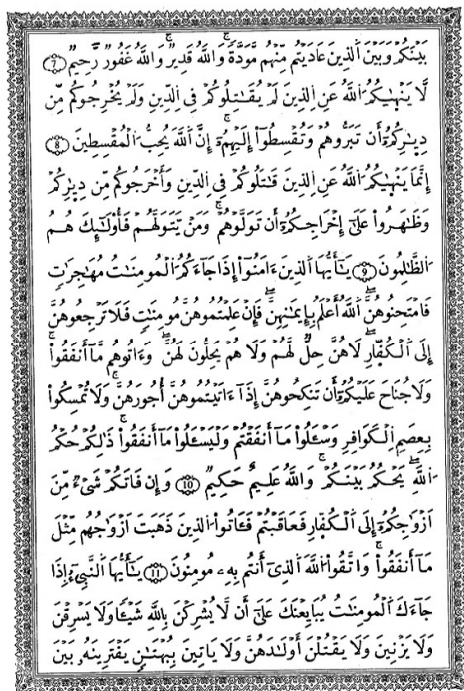 بَيْنَكُمْ وَبَيْنَ اَ۬لذِينَ عَادَيْتُم مِّنْهُم مَّوَدَّةٗۖ وَاللَّهُ قَدِيرٞۖ وَاللَّهُ غَفُورٞ رَّحِيمٞ ٧
لَّا يَنْهَيٰكُمُ اُ۬للَّهُ عَنِ اِ۬لذِينَ لَمْ يُقَٰتِلُوكُمْ فِے اِ۬لدِّينِ وَلَمْ يُخْرِجُوكُم مِّن
دِيٰ۪رِكُمُۥٓ أَن تَبَرُّوهُمْ وَتُقْسِطُوٓاْ إِلَيْهِمُۥٓۖ إِنَّ اَ۬للَّهَ يُحِبُّ اُ۬لْمُقْسِطِينَ ٨
إِنَّمَا يَنْهَيٰكُمُ اُ۬للَّهُ عَنِ اِ۬لذِينَ قَٰتَلُوكُمْ فِے اِ۬لدِّينِ وَأَخْرَجُوكُم مِّن دِيٰ۪رِكُمْ
وَظَٰهَرُواْ عَلَىٰٓ إِخْرَاجِكُمُۥٓ أَن تَوَلَّوْهُمْۖ وَمَنْ يَّتَوَلَّهُمْ فَأُوْلَٰٓئِكَ هُمُ
اُ۬لظَّٰلِمُونَ ٩ يَٰٓأَيُّهَا اَ۬لذِينَ ءَامَنُوٓاْ إِذَا جَآءَكُمُ اُ۬لْمُومِنَٰتُ مُهَٰجِرَٰتٖ
فَامْتَحِنُوهُنَّۖ اَ۬للَّهُ أَعْلَمُ بِإِيمَٰنِهِنَّۖ فَإِنْ عَلِمْتُمُوهُنَّ مُومِنَٰتٖ فَلَا تَرْجِعُوهُنَّ
إِلَى اَ۬لْكُفّ۪ارِۖ لَا هُنَّ حِلّٞ لَّهُمْ وَلَا هُمْ يَحِلُّونَ لَهُنَّۖ وَءَاتُوهُم مَّآ أَنفَقُواْۖ
وَلَا جُنَاحَ عَلَيْكُمُۥٓ أَن تَنكِحُوهُنَّ إِذَآ ءَاتَيْتُمُوهُنَّ أُجُورَهُنَّۖ وَلَا تُمْسِكُواْ
بِعِصَمِ اِ۬لْكَوَافِرِ وَسْـَٔلُواْ مَآ أَنفَقْتُمْ وَلْيَسْـَٔلُواْ مَآ أَنفَقُواْۖ ذَٰلِكُمْ حُكْمُ
اُ۬للَّهِۖ يَحْكُمُ بَيْنَكُمْۖ وَاللَّهُ عَلِيمٌ حَكِيمٞ ١٠ وَإِن فَاتَكُمْ شَےْءٞ مِّنَ
اَزْوَٰجِكُمُۥٓ إِلَى اَ۬لْكُفّ۪ارِ فَعَاقَبْتُمْ فَـَٔاتُواْ اُ۬لذِينَ ذَهَبَتَ اَزْوَٰجُهُم مِّثْلَ
مَآ أَنفَقُواْۖ وَاتَّقُواْ اُ۬للَّهَ اَ۬لذِےٓ أَنتُم بِهِۦ مُومِنُونَ ١١ يَٰٓأَيُّهَا اَ۬لنَّبِےٓءُ اِذَا
جَآءَكَ اَ۬لْمُومِنَٰتُ يُبَايِعْنَكَ عَلَىٰٓ أَن لَّا يُشْرِكْنَ بِاللَّهِ شَيْـٔاٗ وَلَا يَسْرِقْنَ
وَلَا يَزْنِينَ وَلَا يَقْتُلْنَ أَوْلَٰدَهُنَّ وَلَا يَاتِينَ بِبُهْتَٰنٖ يَفْتَرِينَهُۥ بَيْنَ